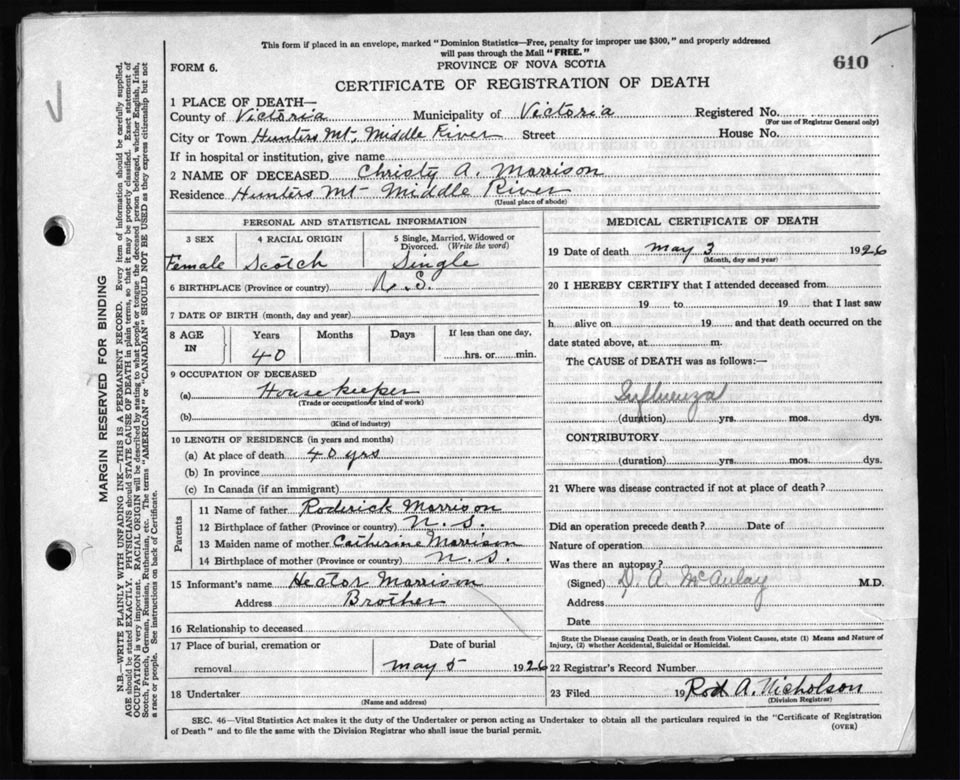 This form if placed in an envelope, marked "Dominion Statistics—Free, penalty for improper use $300," and properly addressed
will pass through the Mail "FREE."
610
FORM 6.
PROVINCE OF NOVA SCOTIA
CERTIFICATE OF REGISTRATION OF DEATH
1 PLACE OF DEATH—
County of Victoria Municipality of Victoria Registered No.
(For use of Registrar General only)
City or Town Hunters Mt, Middle River Street House No.
If in hospital or institution, give name
2 NAME OF DECEASED Christy A. Morrison
Residence Hunters Mt Middle River
(Usual place of abode)
PERSONAL AND STATISTICAL INFORMATION
3 SEX 4 RACIAL ORIGIN 5 Single, Married, Widowed or
Divorced. (Write the word)
Female Scotch Single
6 BIRTHPLACE (Province or country) N.S.
7 DATE OF BIRTH (month, day and year)
8 AGE IN Years Months Days If less than one day,
40 hrs. or min.
9 OCCUPATION OF DECEASED
(a) Housekeeper
(Trade or occupation or kind of work)
(b)
(Kind of industry)
10 LENGTH OF RESIDENCE (in years and months)
(a) At place of death 40 yrs
(b) In province
(c) In Canada (if an immigrant)
Parents
11 Name of father Roderick Morrison
12 Birthplace of father (Province or country) N.S.
13 Maiden name of mother Catherine Morrison
14 Birthplace of mother (Province or country) N.S.
15 Informant's name Hector Morrison
Address Brother
16 Relationship to deceased
17 Place of burial, cremation or Date of burial
removal May 5 1926
18 Undertaker
(Name and address)
MEDICAL CERTIFICATE OF DEATH
19 Date of death May 3 1926
(Month, day and year)
20 I HEREBY CERTIFY that I attended deceased from
19 to 19 that I last saw
h alive on 19 and that death occurred on the
date stated above, at m.
The CAUSE of DEATH was as follows:—
Influenza
(duration) yrs. mos. dys.
CONTRIBUTORY
(duration) yrs. mos. dys.
21 Where was disease contracted if not at place of death?
Did an operation precede death? Date of
Nature of operation
Was there an autopsy?
(Signed) D. A. McAulay M.D.
Address
Date
State the Disease causing Death, or in death from Violent Causes, state (1) Means and Nature of
Injury, (2) whether Accidental, Suicidal or Homicidal.
22 Registrar's Record Number
23 Filed 19 Rod A. Nicholson
(Division Registrar)
SEC. 46—Vital Statistics Act makes it the duty of the Undertaker or person acting as Undertaker to obtain all the particulars required in the "Certificate of Registration
of Death" and to file the same with the Division Registrar who shall issue the burial permit.
(OVER)
MARGIN RESERVED FOR BINDING
N.B.—WRITE PLAINLY WITH UNFADING INK—THIS IS A PERMANENT RECORD. Every item of information should be carefully supplied.
AGE should be stated EXACTLY. PHYSICIANS should STATE CAUSE OF DEATH in plain terms, so that it may be properly classified. Exact statement of
OCCUPATION is very important. RACIAL ORIGIN will be described by stating to what people or tongue the deceased person belonged, whether English, Irish,
Scotch, French, German, Russian, Ruthenian, etc. The terms "AMERICAN" or "CANADIAN" SHOULD NOT BE USED as they express citizenship but not
a race or people. See instructions on back of Certificate.